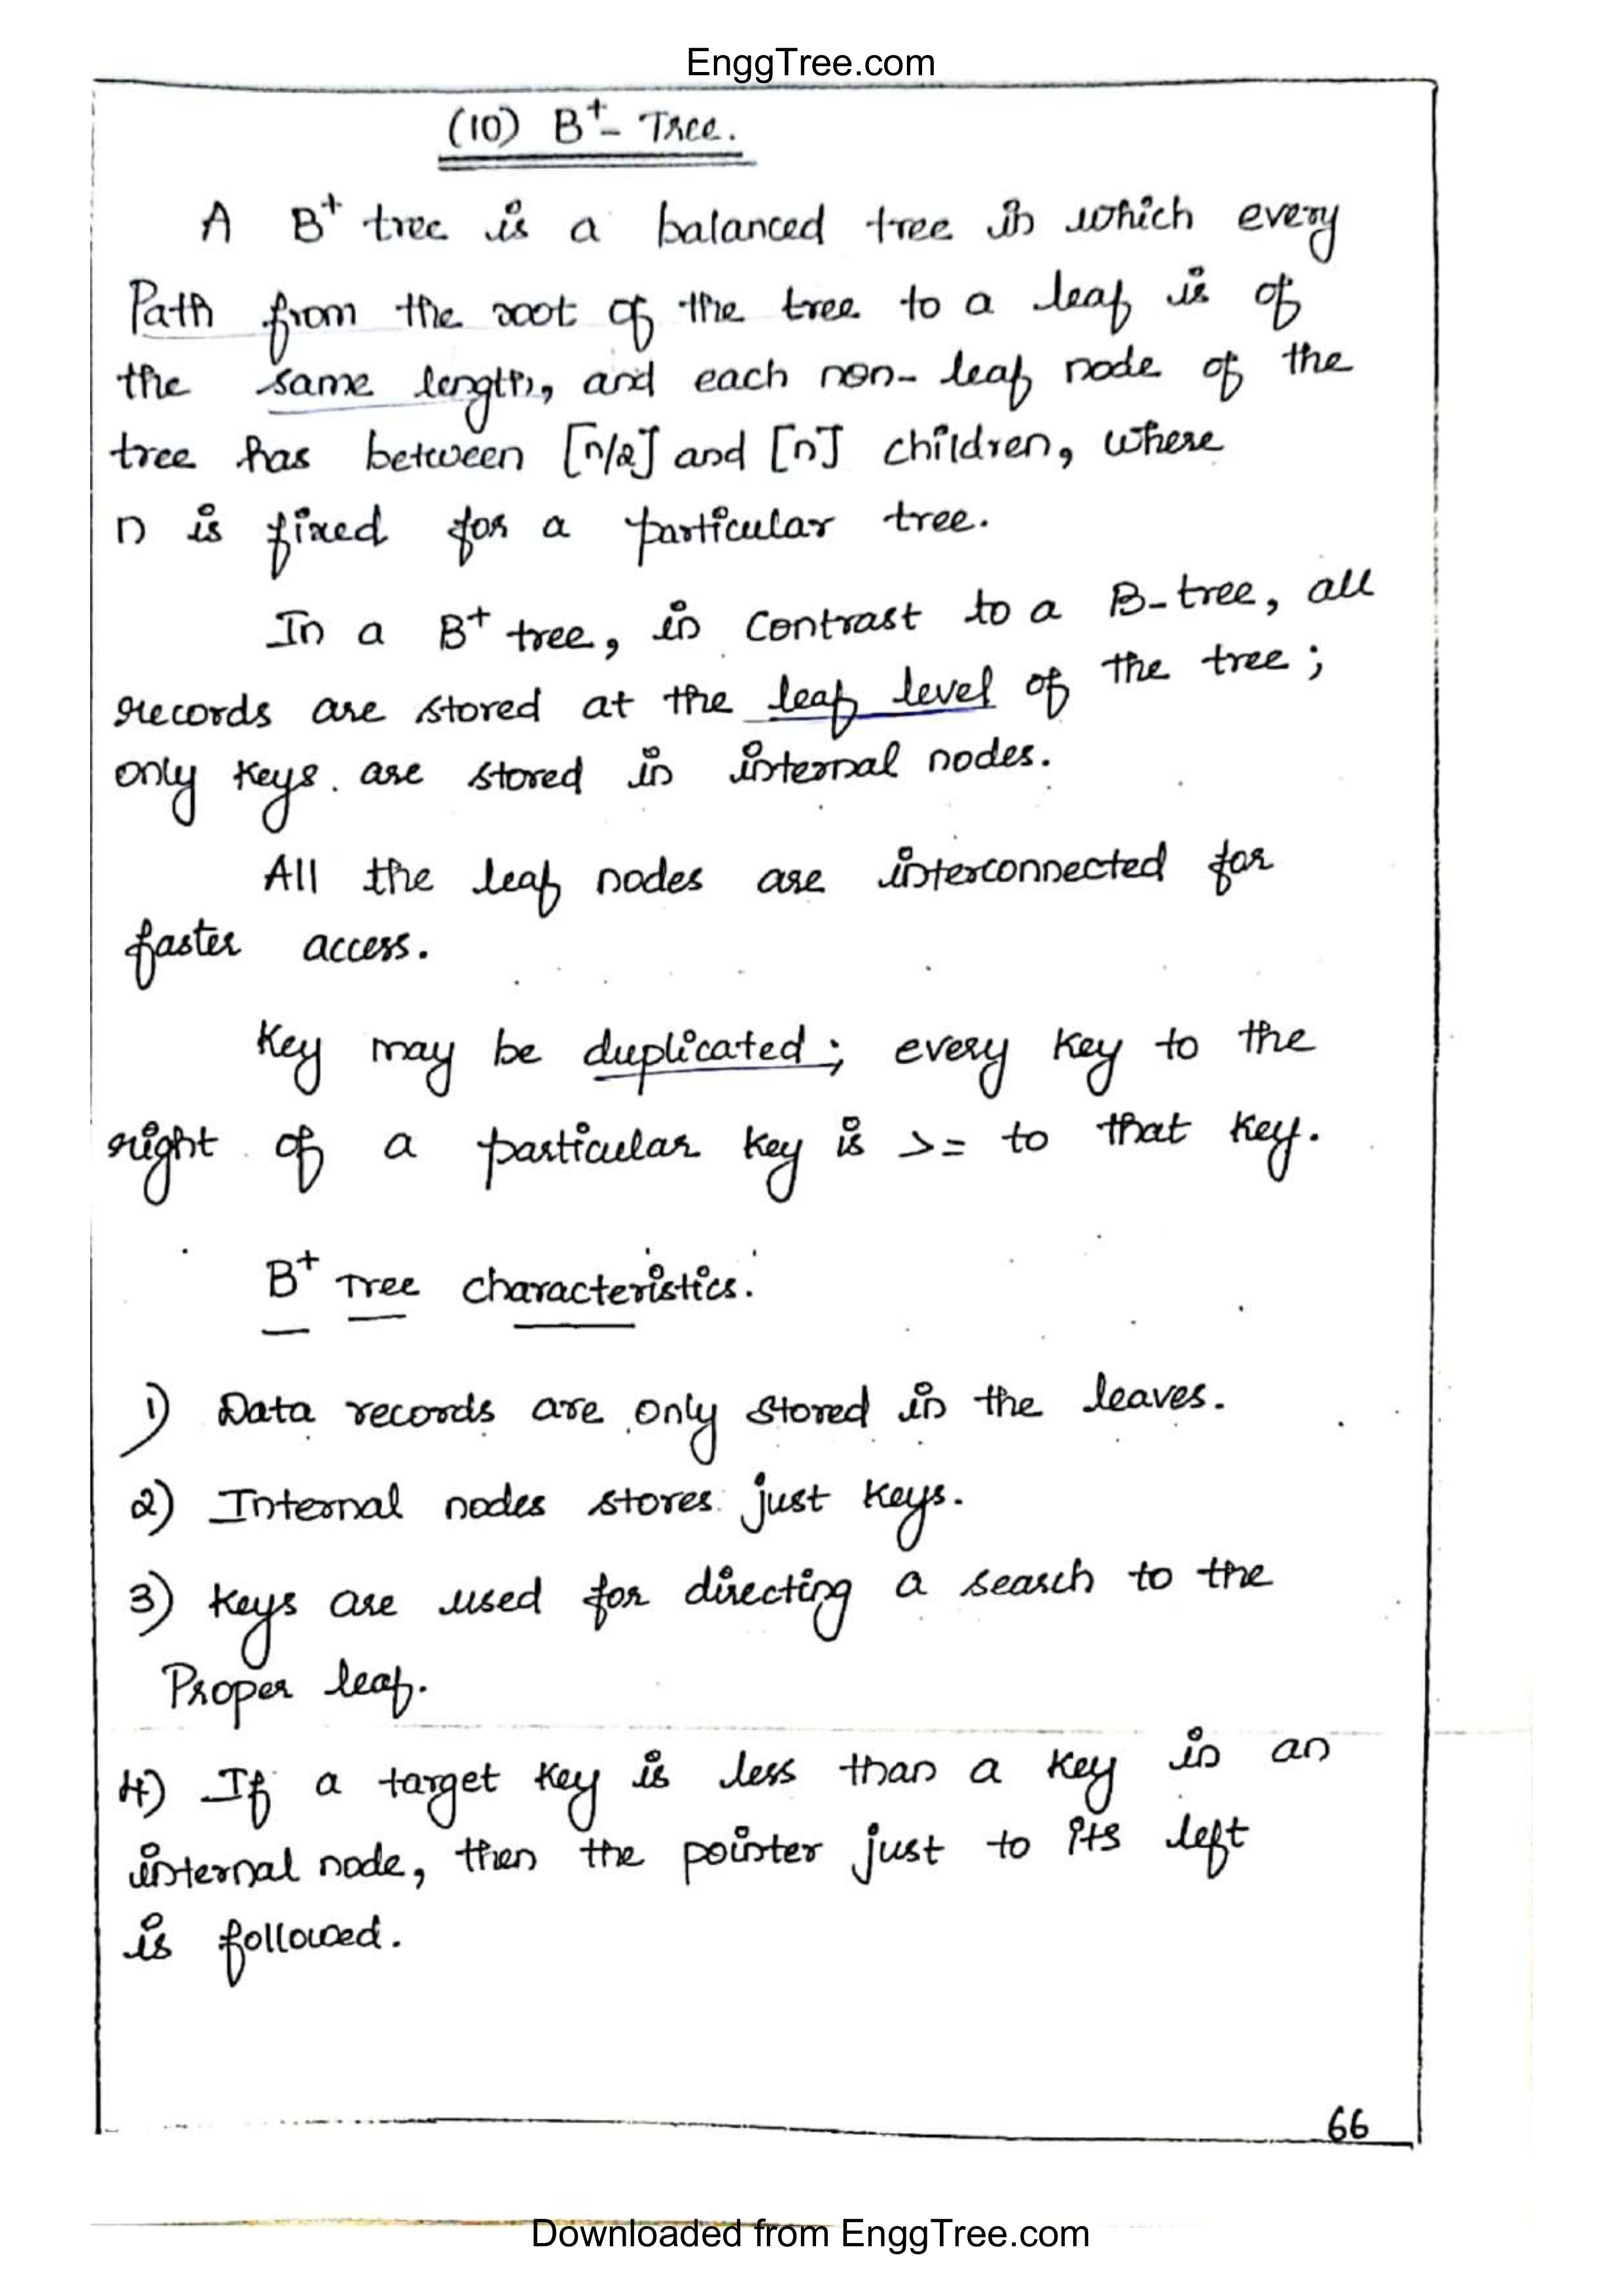 EnggTree.com
(10) B+- Tree.
A B+ tree is a balanced tree in which every
Path from the root of the tree to a leaf is of
the same length, and each non-leaf node of the
tree has between [n/2] and [n] children, where
n is fixed for a particular tree.
In a B+ tree, in contrast to a B-tree, all
records are stored at the leaf level of the tree;
only keys are stored in internal nodes.
All the leaf nodes are interconnected for
faster access.
Key may be duplicated; every key to the
right of a particular key is >= to that key.
B+ Tree characteristics.
1) Data records are only stored in the leaves.
2) Internal nodes stores just keys.
3) Keys are used for directing a search to the
Proper leaf.
4) If a target key is less than a key in an
internal node, then the pointer just to its left
is followed.
66
Downloaded from EnggTree.com